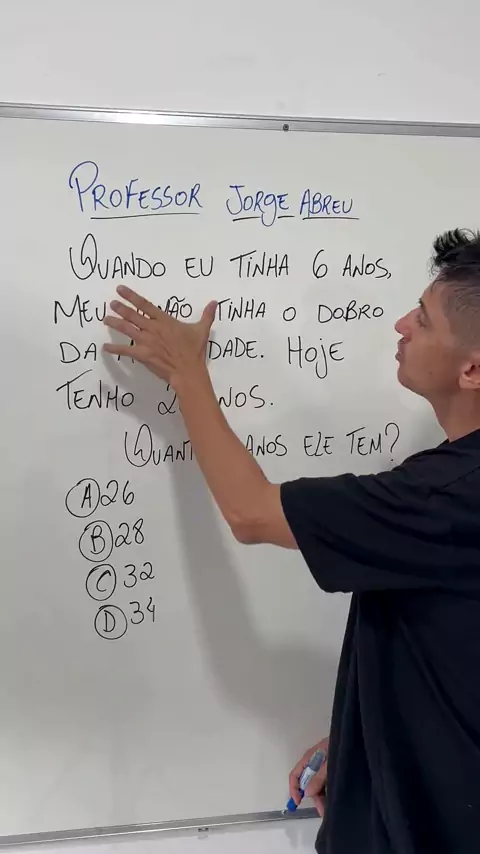 PROFESSOR JORGE ABREU
QUANDO EU TINHA 6 ANOS,
MEU TINHA O DOBRO
DA IDADE. HOJE
TENHO
ANOS ELE TEM?
A 26
B 28
C 32
D 34